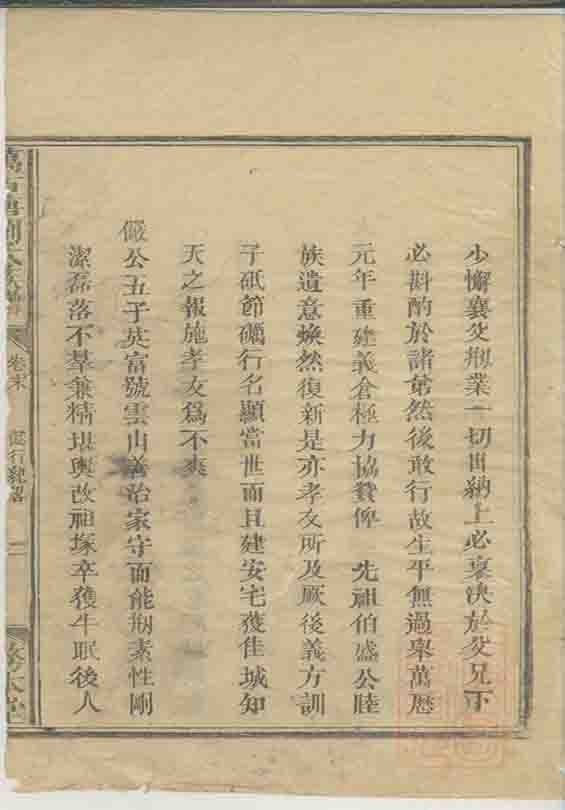 少懈襄父剏業一切出納上必稟決於父兄下
必斟酌於諸弟然後敢行故生平無過舉萬歷
元年重建義倉極力協贊俾 先祖伯盛公睦
族遺意煥然復新是亦孝友所及厥後義方訓
子砥節礪行名顯當世而且建安宅獲佳城知
天之報施孝友爲不爽
儼公五子英富號雲山善治家守而能剏素性剛
潔磊落不羣兼精堪輿改祖塚卒獲牛眠後人
卷末
懿行紀畧
二